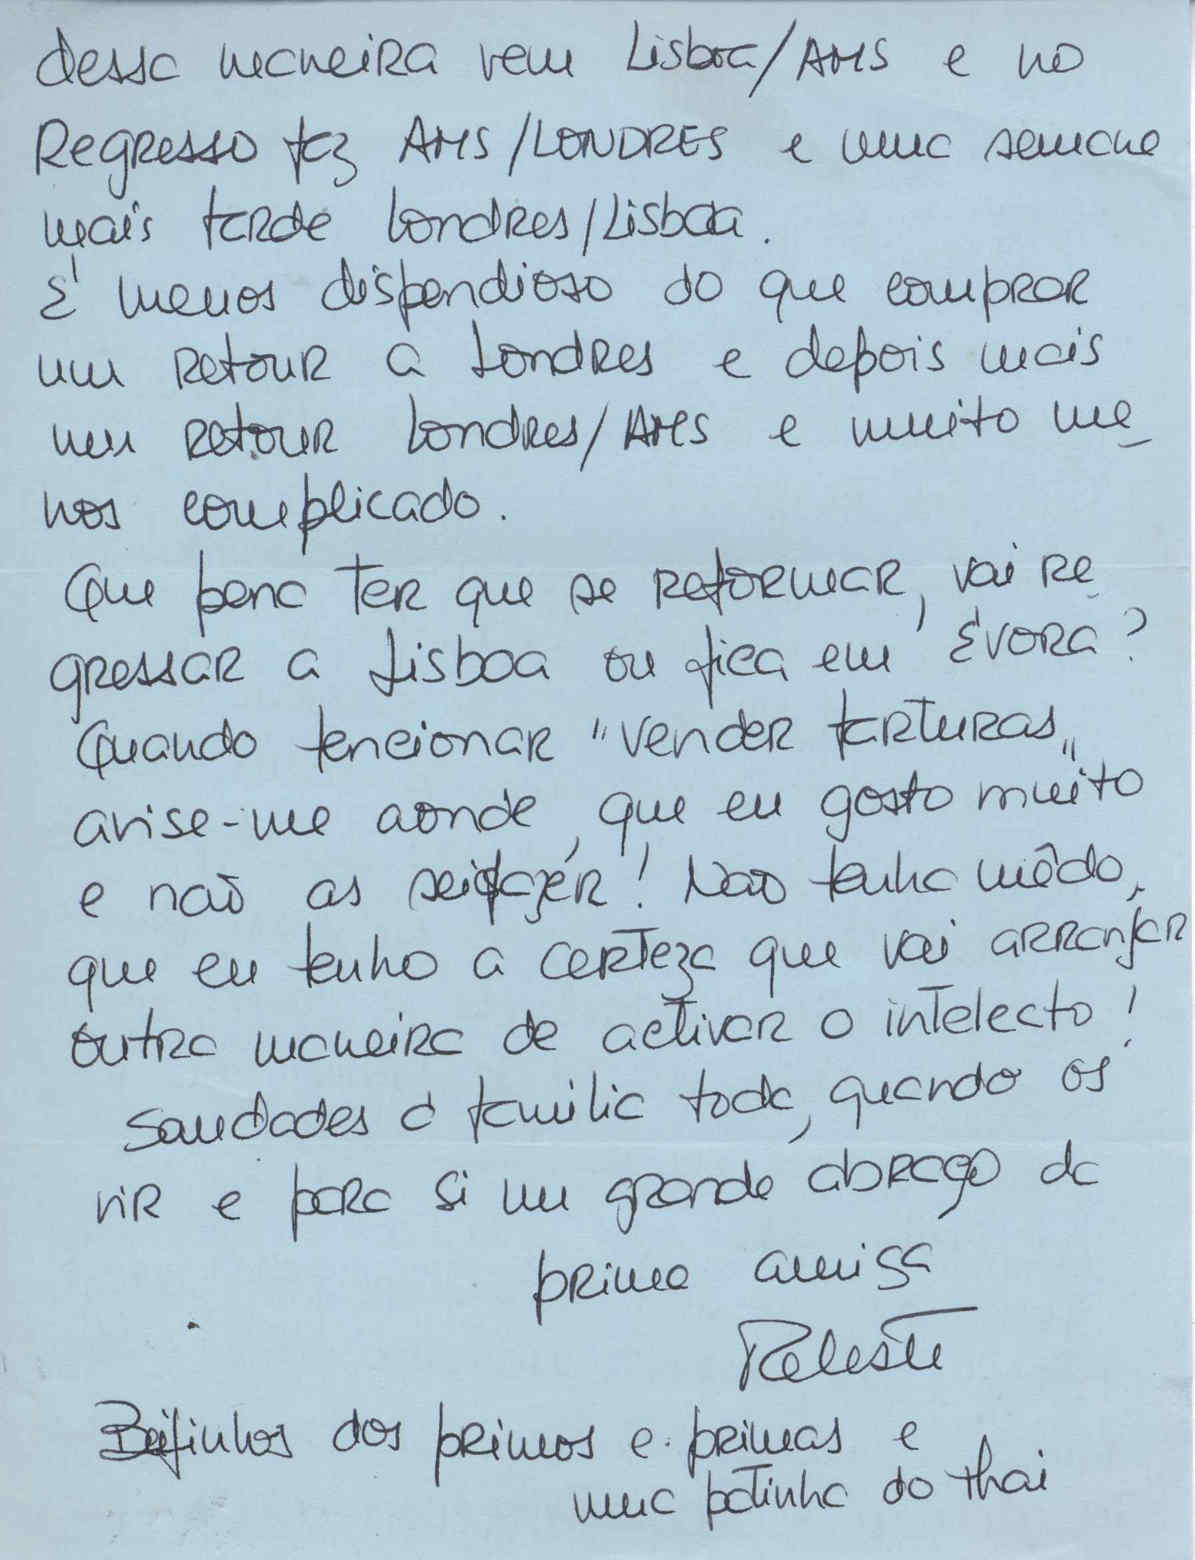 dessa maneira vem Lisboa/AMS e no
Regresso faz AMS/LONDRES e uma semana
mais tarde Londres/Lisboa.
É menos dispendioso do que comprar
um retour a Londres e depois mais
um retour Londres/AMS e muito me_
nos complicado.
Que pena ter que se reformar, vai re_
gressar a Lisboa ou fica em Évora?
Quando tencionar "vender farturas„
avise-me aonde, que eu gosto muito
e não as sei fazer! Não tenha mêdo,
que eu tenho a certeza que vai arranjar
outra maneira de activar o intelecto!
Saudades á familia toda, quando os
vir e para si um grande abraço da
prima amiga
Celeste
Beijinhos dos primos e primas e
uma patinha do thai